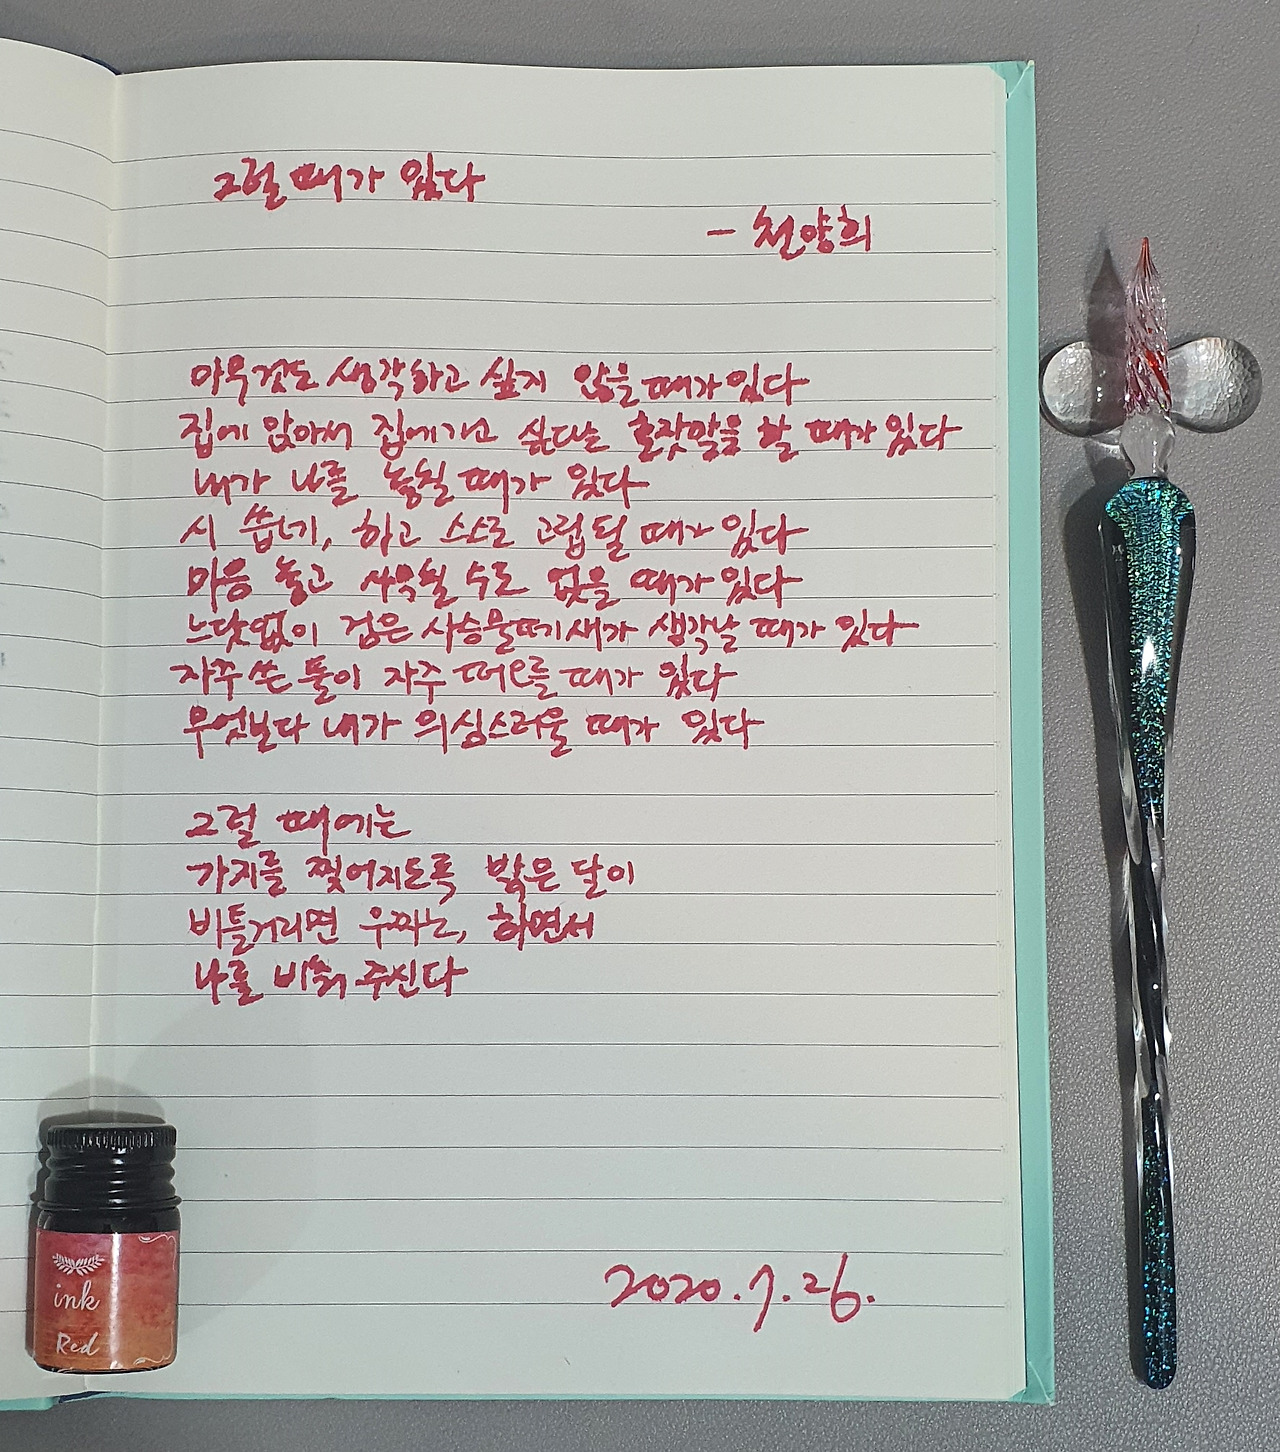 그럴 때가 있다
- 천양희
아무것도 생각하고 싶지 않을 때가 있다
집에 앉아서 집에 가고 싶다는 혼잣말을 할 때가 있다
내가 나를 놓칠 때가 있다
시 쓰기, 하고 스스로 고립될 때가 있다
마음 놓고 사악될 수도 없을 때가 있다
느닷없이 검은 사승물떼새가 생각날 때가 있다
자주 쓴 돌이 자주 떠오를 때가 있다
무엇보다 내가 의심스러울 때가 있다
그럴 때에는
가지를 찢어지도록 밝은 달이
비틀거리면 우짜노, 하면서
나를 비춰 주신다
2020.7.26.
ink
Red